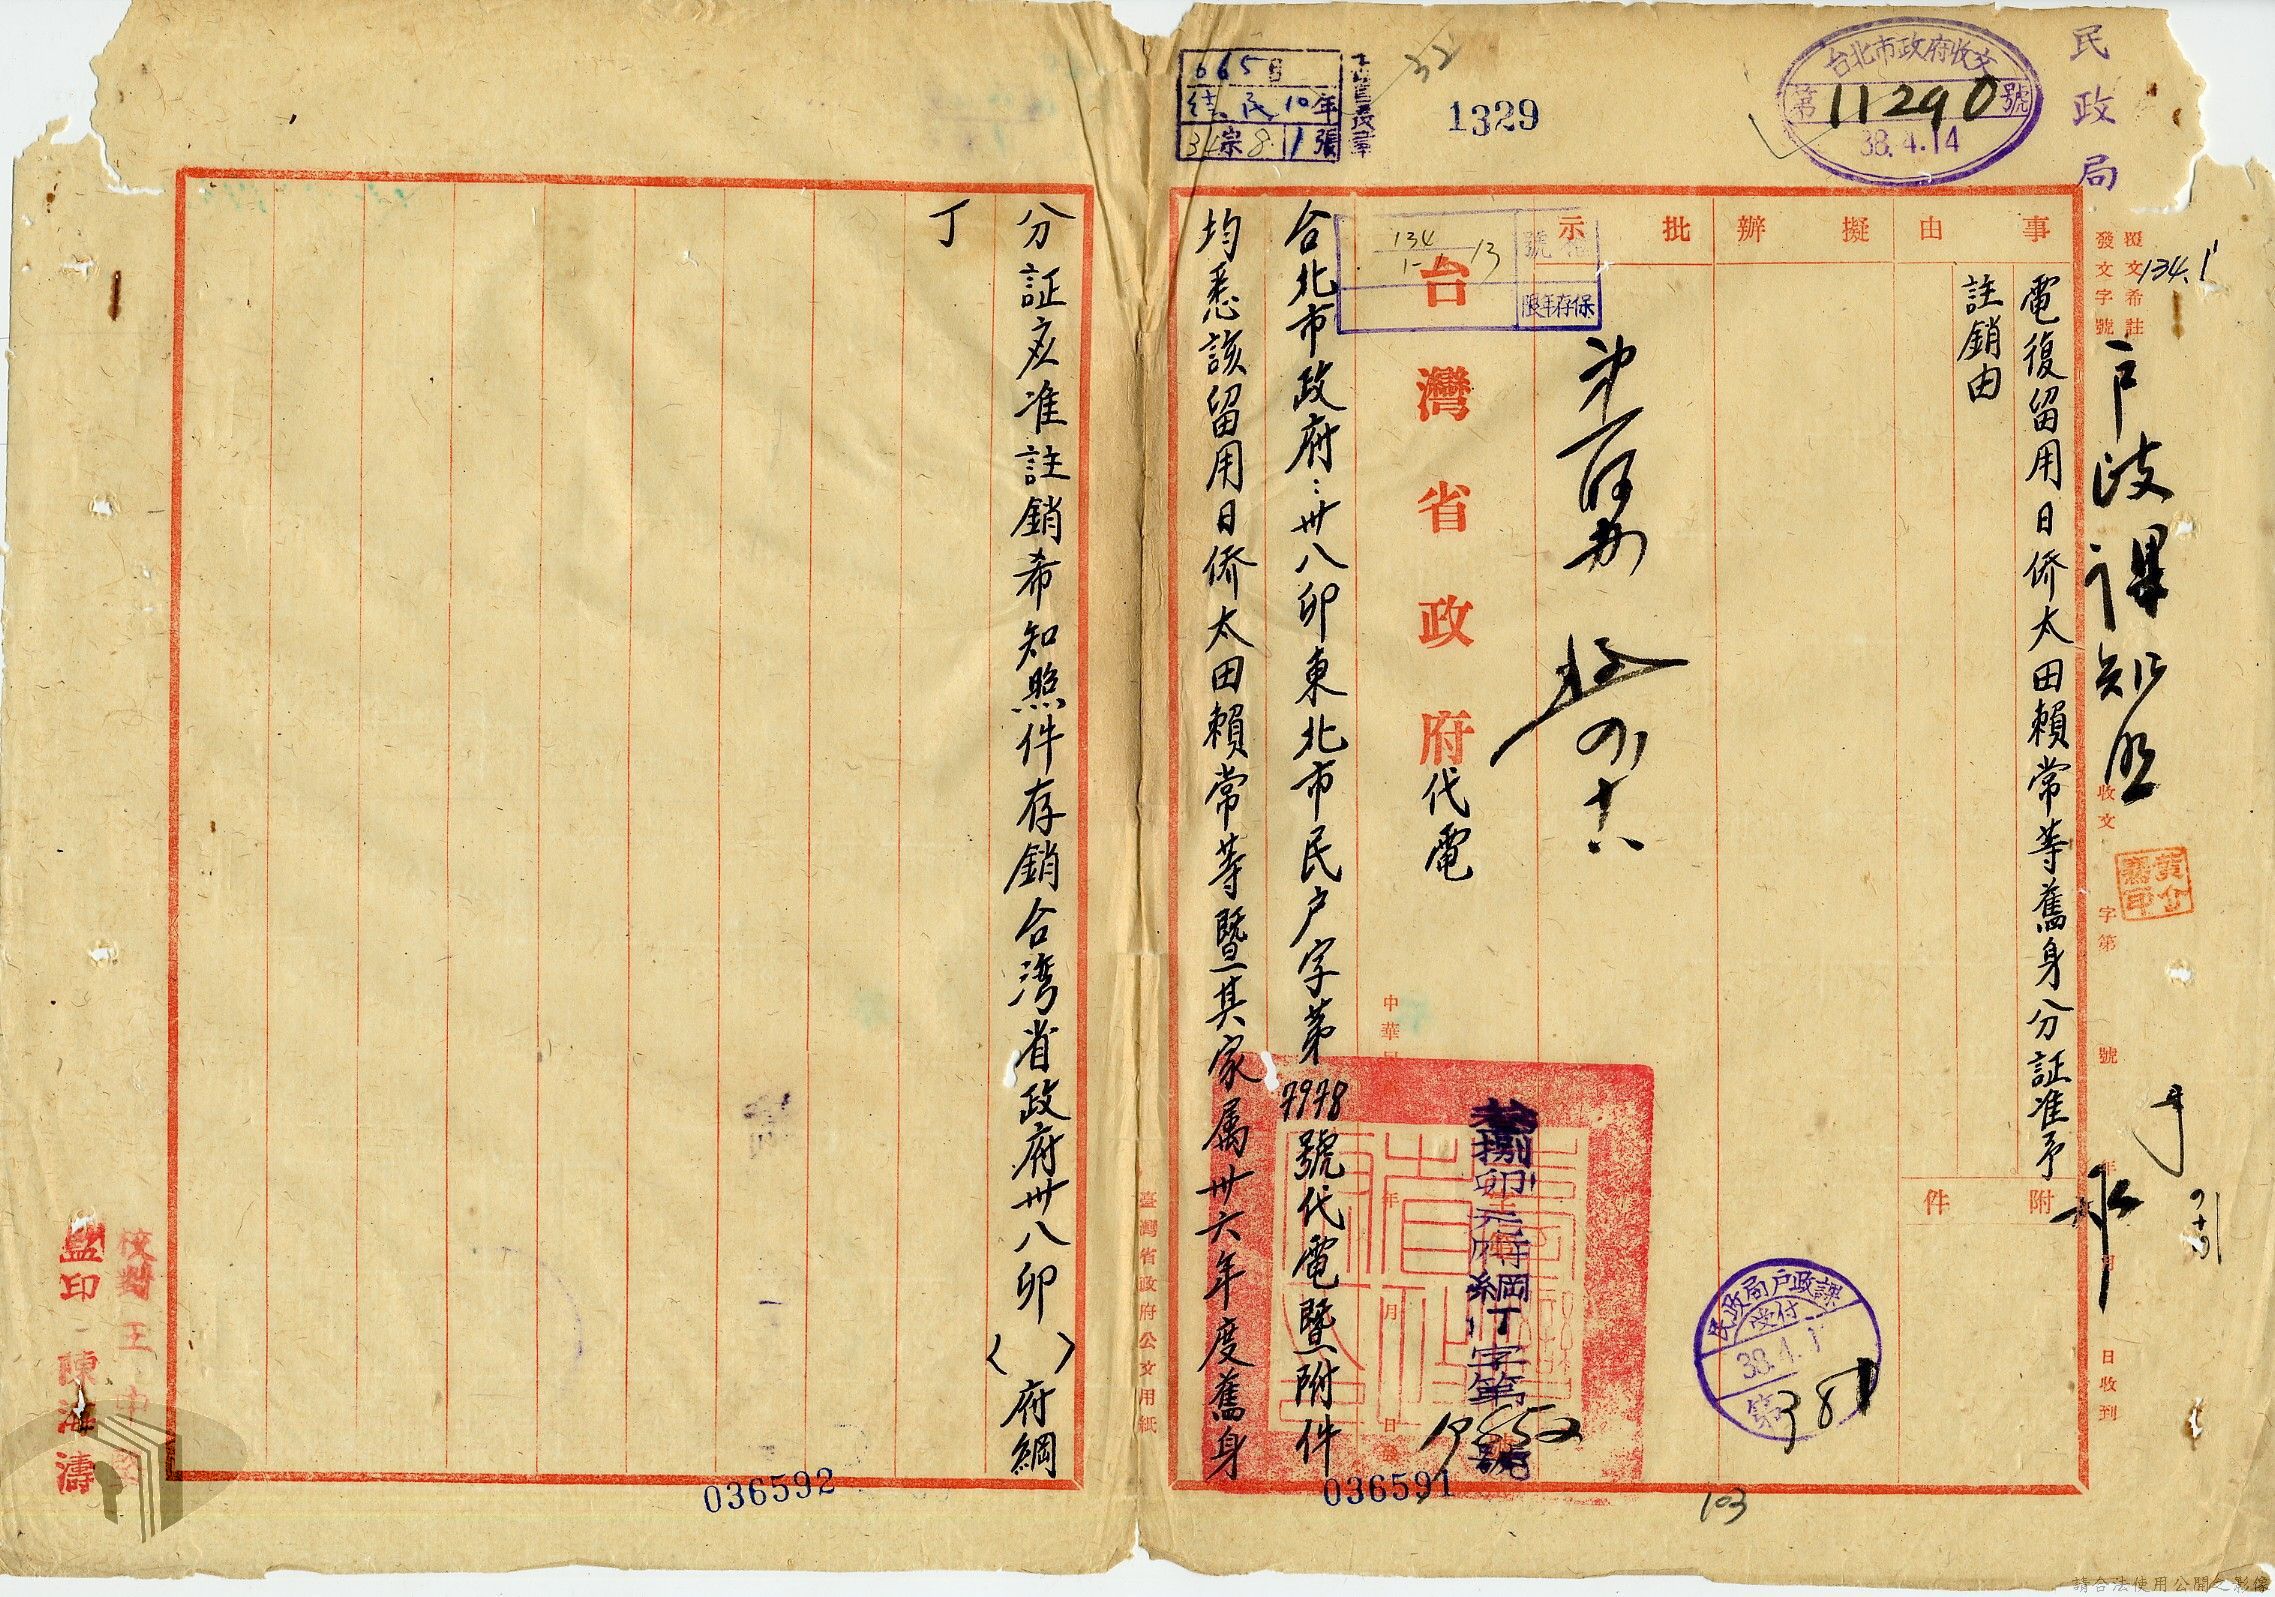 民政局
台北市政府收文
第11290號
38.4.14
1329
32
665号
10年
34宗8 1張
覆文希註
發文字號
134.1
收文 字第 號 年 月 日收到
戶政課知照
事由
擬辦
批示
電復留用日侨太田賴常等舊身分証准予
註銷由
附件
號
134
1-1
13
保存年限
台灣省政府代電
中華民
年 月 日
捌卯元府綱丁字第
號
民政局戶政課
受付
38.4.1
第
103
台北市政府:卅八卯東北市民户字第7978號代電暨附件
均悉該留用日侨太田賴常等暨其家属卅六年度舊身
036591
臺灣省政府公文用紙
分証亥准註銷希知照件存銷台湾省政府卅八卯( )府綱
丁
036592
校對王中
監印 陳海濤
請合法使用公開之影像